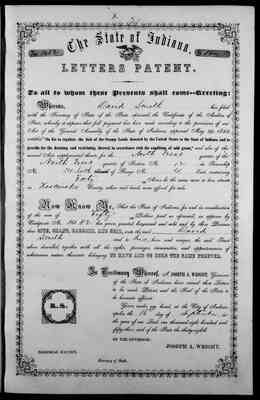 The State of Indiana.
LETTERS PATENT.
To all to whom these Presents shall come—Greeting:
Whereas, David Smith has filed
with the Secretary of State of the State aforesaid the Certificate of the Auditor of
State, whereby it appears that full payment has been made according to the provisions of an
Act of the General Assembly of the State of Indiana, approved May
entitled "An Act to regulate the Sale of the Swamp Lands donated by the United States to the State of Indiana and to
provide for the draining and reclaiming thereof in accordance with the condition of said grant," and also of the
several Acts supplemental thereto, for the North West quarter of the
North West quarter of Section No. in Township
No. North of Range No. East, containing
Forty Acres in the same more or less, situate
Kosciusko County, when said lands were offered for sale.
Now Know Ye, That the State of Indiana, for and in consideration
of the sum of Fifty Dollars, paid as aforesaid, as appears by
Certificate No. has granted, bargained and sold, and by these Presents
does GIVE, GRANT, BARGAIN, AND SELL, unto the said David
Smith and to his heirs and assigns, the said Tract
above described, together with all the rights, privileges, immunities and appurtenances of
whatsoever nature thereunto belonging, TO HAVE AND TO HOLD THE SAME FOREVER.
In Testimony Whereof, I, JOSEPH A. WRIGHT, Governor
of the State of Indiana, have caused these Letters
to be made Patent, and the Seal of the State to
be hereunto affixed.
Given under my hand, at the City of Indian-
apolis, the day of September, in
the year of our Lord one thousand eight hundred and
fifty and of the State the thirty-eighth.
BY THE GOVERNOR:
JOSEPH A. WRIGHT.
Secretary of State.